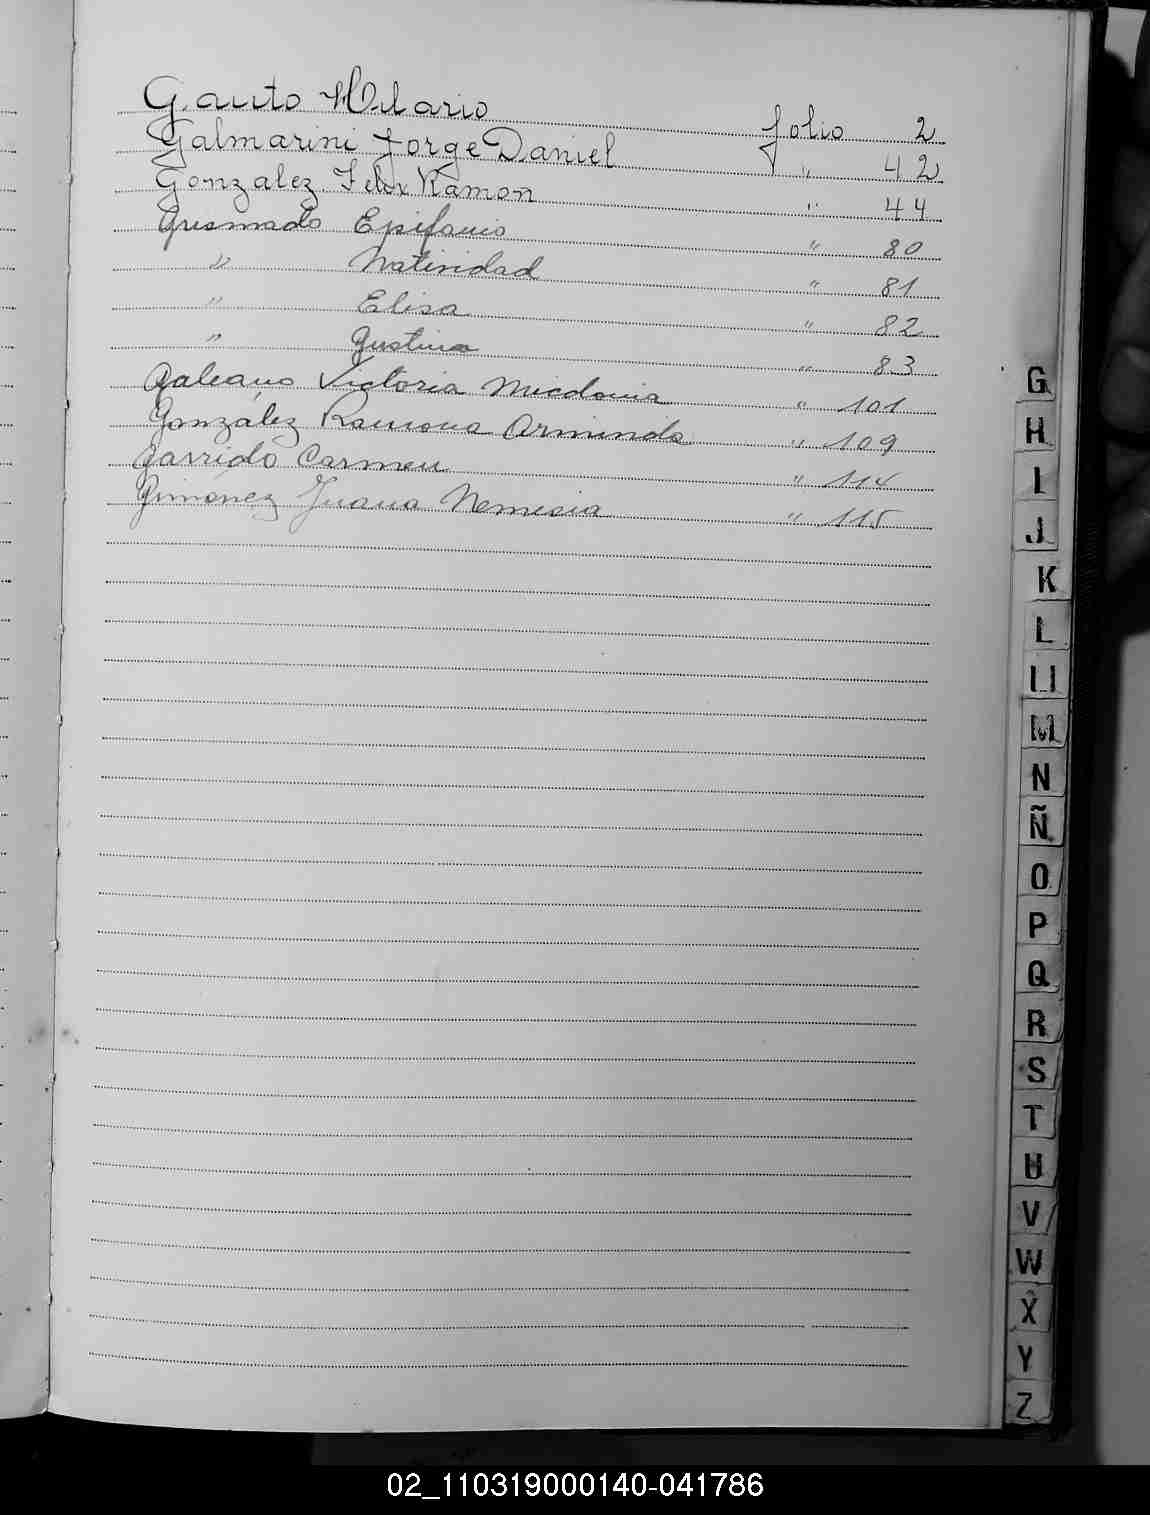 Gauto Hilario folio 2
Galmarini Jorge Daniel " 42
Gonzalez Felix Ramon " 44
Gresmado Epifanio " 80
" Natividad " 81
" Elisa " 82
" Gustina " 83
Galeano Victoria Micdonia " 101
González Ramona Arminda " 109
Garrido Carmen " 114
Gimenez Juana Nemesia " 115
G
H
I
J
K
L
Ll
M
N
Ñ
O
P
Q
R
S
T
U
V
W
X
Y
Z
02_110319000140-041786